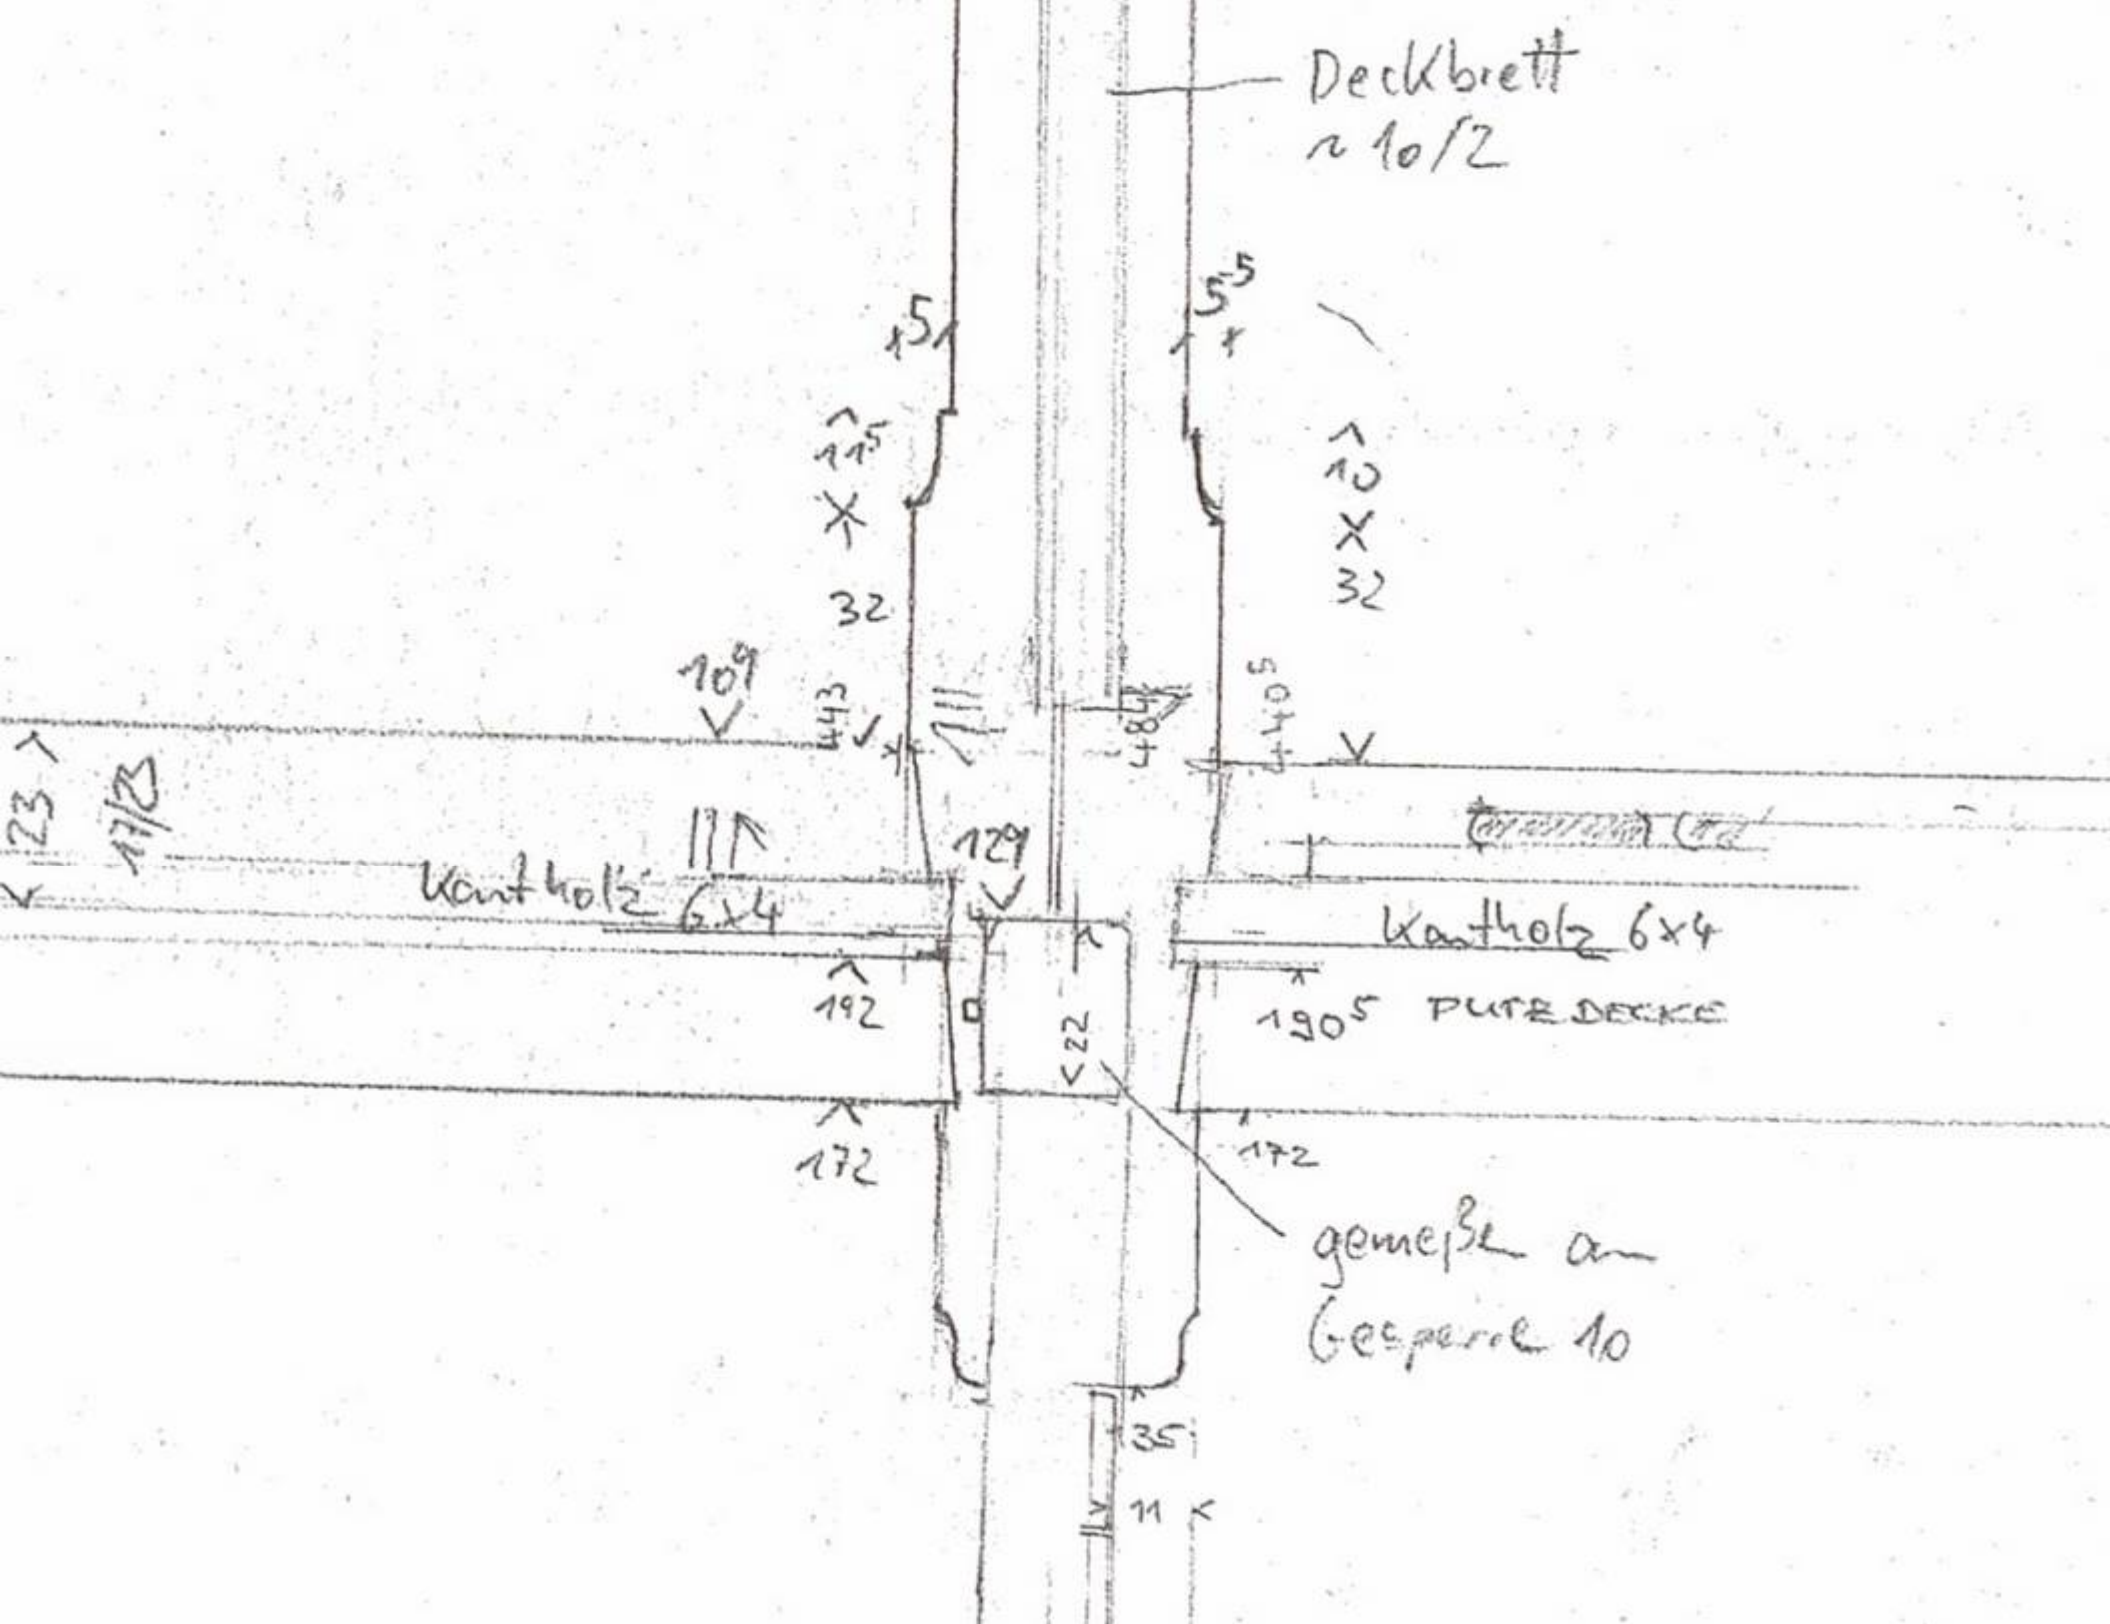 Deckbrett
~ 10/2
5
5⁵
11⁵
10
32
32
109
443
484
440⁵
23
17/23
129
Kantholz
6x4
Kantholz 6x4
192
22
190⁵ PUTZDECKE
172
172
gemeßen am
Gespärre 10
35
11